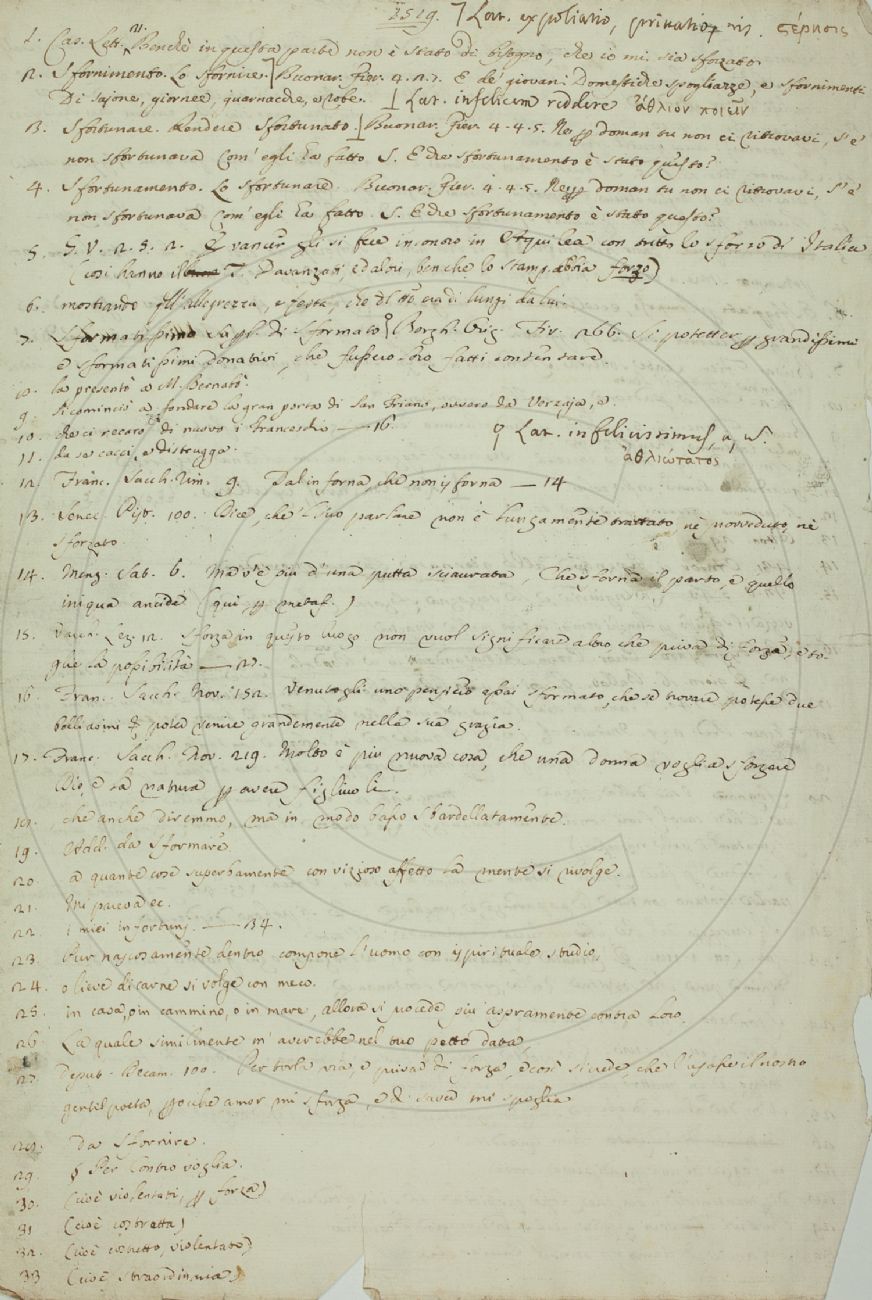 1519. ⁊ Lat. expoliatio, privatio, nis. στέρησις
1. Cas. Lett. Benchè in questa parte non è stato di bisogno, che io mi sia sforzato.
2. Sfornimento. Lo sfornire. ] Buonar. Fier. 4. 2. 7. E de' giovani Domestiche spogliazze, e sfornimenti
Di sajone, giornee, guarnacche, e robe. Lat. infelicem reddere ἄθλιον ποιεῖν
3. Sfortunare. Rendere sfortunato. Buonar. Fier. 4. 4. 5. Ne ꝑ doman tu non ci ritrovavi, S' e'
non sfortunava Com' egli ha fatto. S. E che sfortunamento è stato questo?
4. Sfortunamento. Lo sfortunare. Buonar. Fier. 4. 4. 5. Ne ꝑ doman tu non ci ritrovavi, S' e'
non sfortunava Com' egli ha fatto. S. E che sfortunamento è stato questo?
5. G. V. 2. 8. 2. gli si fece incontro in Aquilea con tutto lo sforzo di Italia
(così hanno il T. Davanzati, ed altri, benche lo stamp. abbia forzo)
6. mostrando allegrezza, e festa, che era di lungi da lui.
7. Sformatissimo Superl. di sformato. Borgh. Orig. Fir. 266. Si potetter ꝑ grandissimi
e sformatissimi donativi, che fussero loro fatti contentare.
8. la presentò a M. Bernabò.
9. Si cominciò a fondare la gran porta di San Friano, ovvero da Verzaja, e
10. che ci recarò di nuovo i Franceschi — 16. Lat. infelicissimus, a, um.
11. da se cacci, e distrugga. ἀθλιώτατος
12. Franc. Sacch. Rim. 9. Tal inforna, che non isforna — 14
13. Senec. Pist. 100. Dice, che 'l suo parlare non è lungamente trattato, nè provveduto, nè
sforzato.
14. Menz. Sat. 6. Ma v'è più d'una putta sciaurata, Che sforna il parto, e quello
iniqua ancide (qui ꝑ metaf.)
15. Varch. Lez. 12. Sforza in questo luogo non vuol significare altro che priva di forza, e to-
glie la possibilità — 27.
16. Fran. Sacch. Nov. 152. Venutogli uno pensiero assai sformato, che se trovare potesse due
belli asini potea venire grandemente nella sua grazia.
17. Franc. Sacch. Nov. 219. Molto è più nuova cosa, che una donna voglia sforzare
Dio, e la natura ꝑ avere figliuoli.
18. che anche diremmo, ma in modo basso sbardellatamente.
19. Add. da sformare.
20. a quante cose superbamente con vizioso affetto la mente si rivolge.
21. Mi pareva ec.
22. i miei infortunj. — 34.
23. Pur nascosamente dentro compone l'uomo con ispirituale studio,
24. o lieve di carne si volge con meco.
25. in casa, o in cammino, o in mare, allora si procede più aspramente contra loro
26. La quale similmente m' averebbe nel tuo petto data,
27. Deput. Decam. 100. Per torla via, e privar di forza, e così si vede, che l' usasse il nostro
gentil poeta, ꝑocche amor mi sforza, e di saver mi spoglia
28. da Sfornire.
29. § Per Contro voglia.
30. (cioè violentati, ꝑ forza)
31 (cioè costretta)
32. (cioè costretto, violentato)
33 (cioè straordinaria)